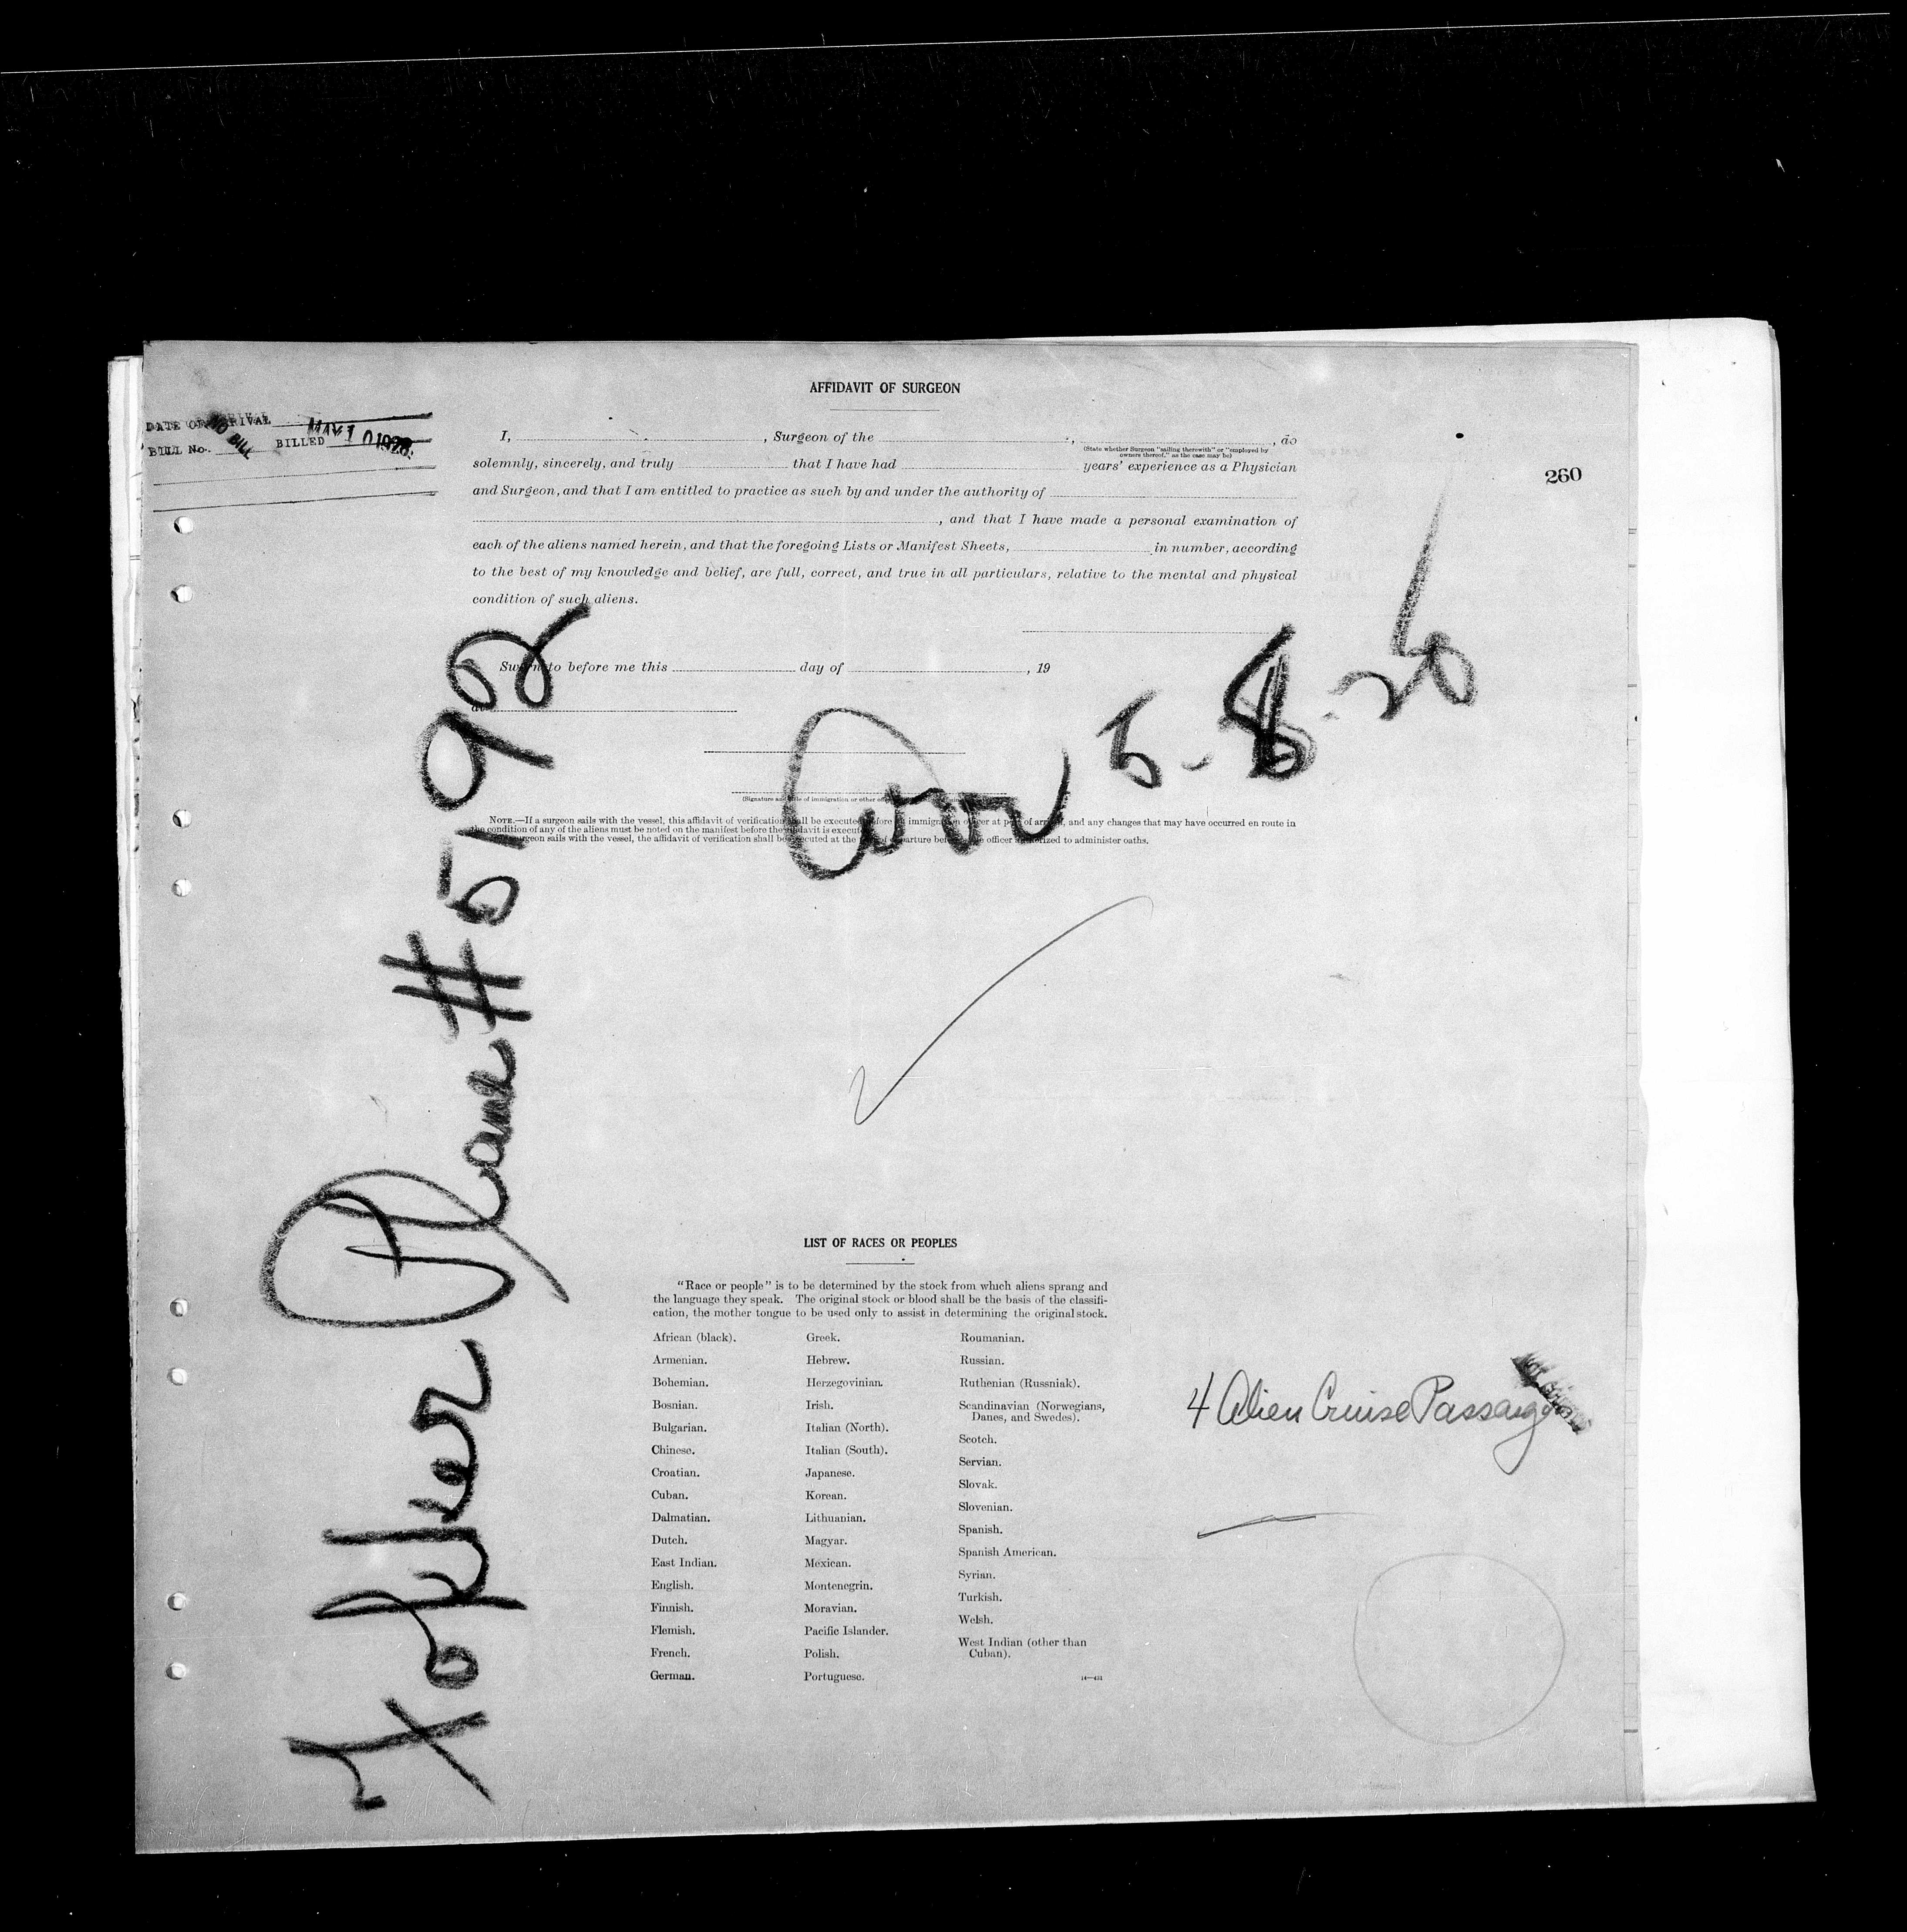 AFFIDAVIT OF SURGEON
DATE OF ARRIVAL
BILL No. NO BILL BILLED MAY 10 1926
260
I, , Surgeon of the , , do
(State whether Surgeon "sailing therewith" or "employed by
owners thereof," as the case may be)
solemnly, sincerely, and truly that I have had years' experience as a Physician
and Surgeon, and that I am entitled to practice as such by and under the authority of
, and that I have made a personal examination of
each of the aliens named herein, and that the foregoing Lists or Manifest Sheets, in number, according
to the best of my knowledge and belief, are full, correct, and true in all particulars, relative to the mental and physical
condition of such aliens.
Sworn to before me this day of , 19
at
(Signature and title of immigration or other
NOTE.—If a surgeon sails with the vessel, this affidavit of verification shall be executed before immigration officer at port of arrival, and any changes that may have occurred en route in
the condition of any of the aliens must be noted on the manifest before the affidavit is executed
surgeon sails with the vessel, the affidavit of verification shall be executed at the of departure before officer authorized to administer oaths.
Arr 5-8-26
Fokker Plane #5192
LIST OF RACES OR PEOPLES
"Race or people" is to be determined by the stock from which aliens sprang and
the language they speak. The original stock or blood shall be the basis of the classifi-
cation, the mother tongue to be used only to assist in determining the original stock.
African (black).
Armenian.
Bohemian.
Bosnian.
Bulgarian.
Chinese.
Croatian.
Cuban.
Dalmatian.
Dutch.
East Indian.
English.
Finnish.
Flemish.
French.
German.
Greek.
Hebrew.
Herzegovinian.
Irish.
Italian (North).
Italian (South).
Japanese.
Korean.
Lithuanian.
Magyar.
Mexican.
Montenegrin.
Moravian.
Pacific Islander.
Polish.
Portuguese.
Roumanian.
Russian.
Ruthenian (Russniak).
Scandinavian (Norwegians,
Danes, and Swedes).
Scotch.
Servian.
Slovak.
Slovenian.
Spanish.
Spanish American.
Syrian.
Turkish.
Welsh.
West Indian (other than
Cuban).
4 Alien Cruise Passang